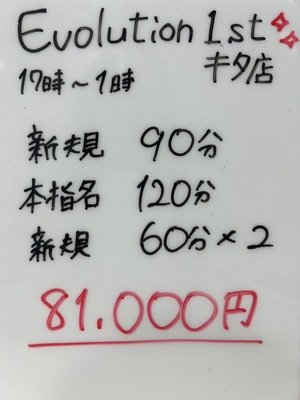 Evolution 1st
キタ店
17時～1時
新規 90分
本指名 120分
新規 60分×2
81.000円